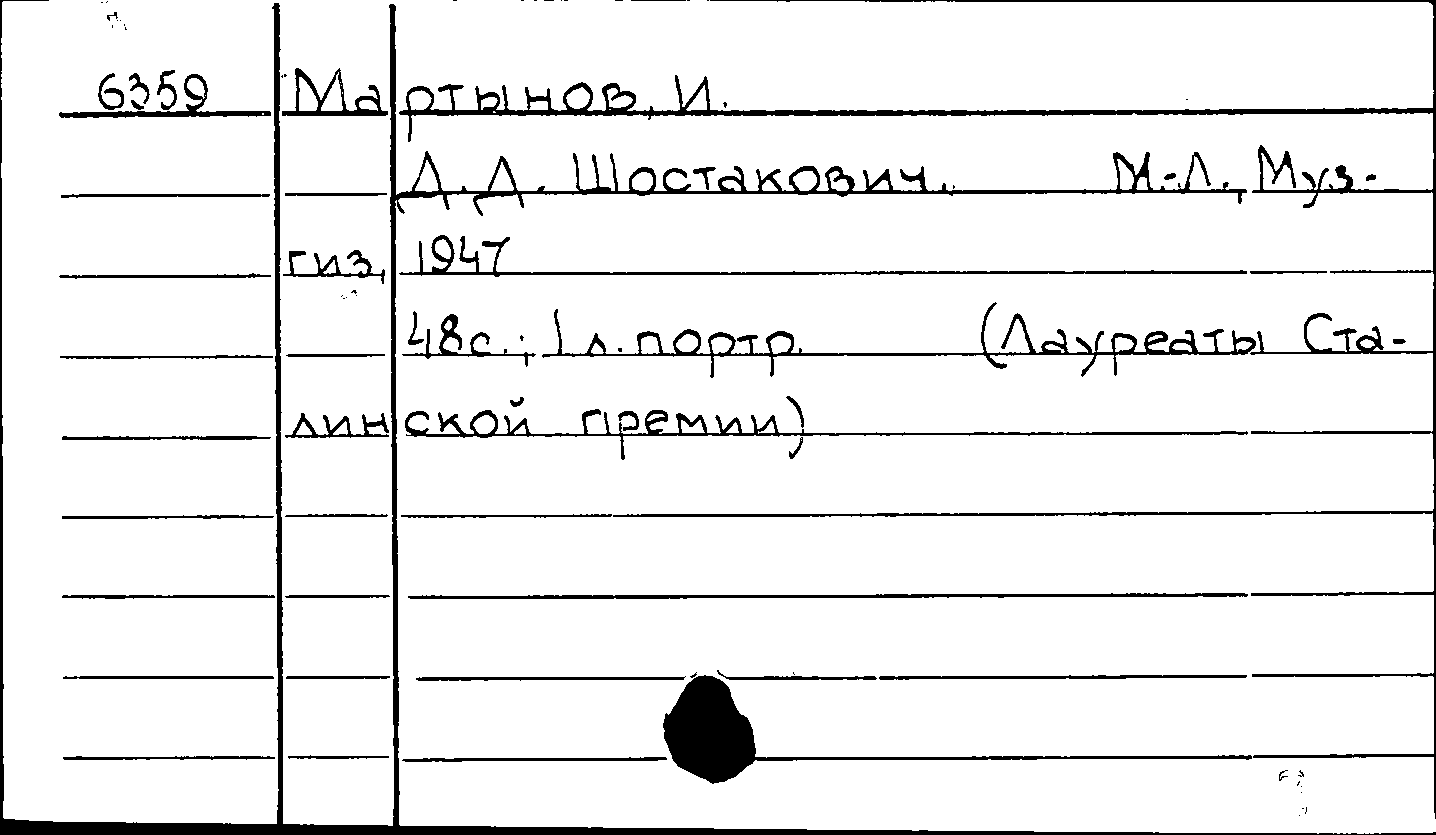 6359 Мартынов, И.
Д.Д. Шостакович. М.-Л., Муз-
гиз, 1947
48с.; 1 л. портр. (Лауреаты Ста-
линской премии)